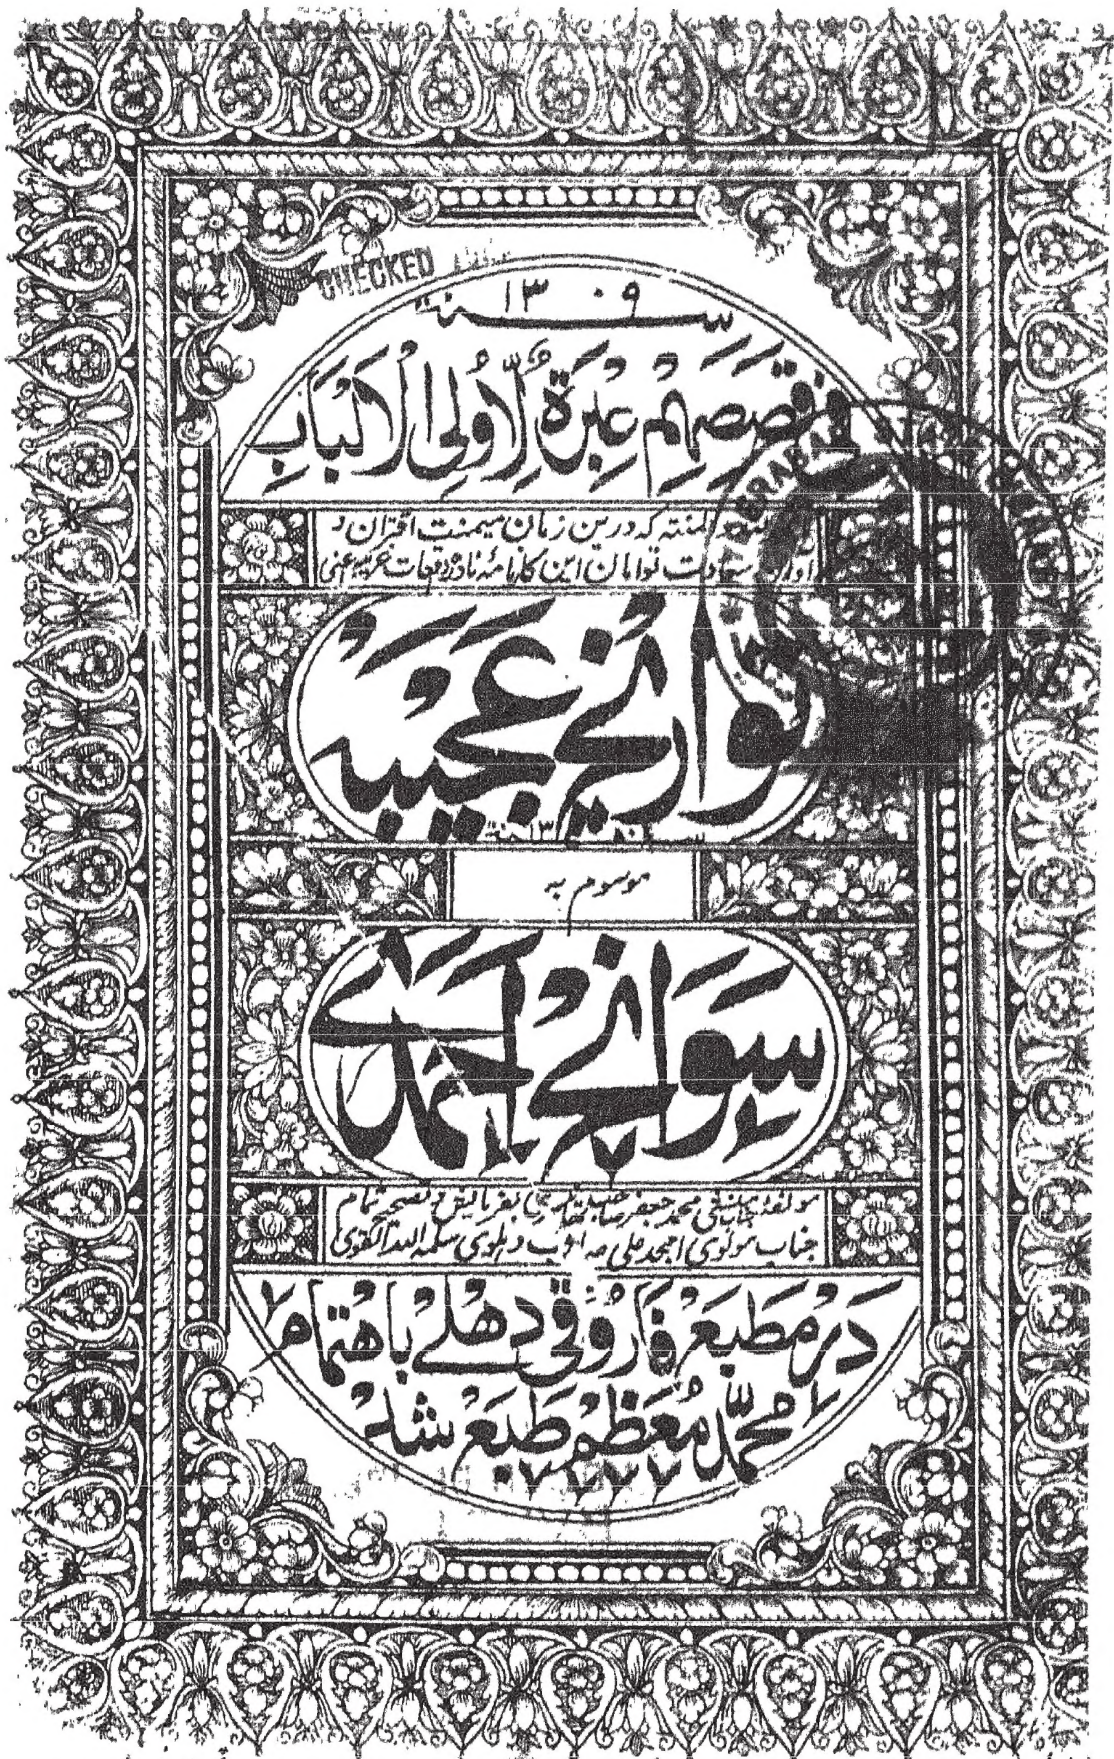 CHECKED
سنة ١٣٠٩
فی قصصهم عبرة لاولی الالباب
المنته که درین زمان میمنت اقتران و
سعادت توامان این کارنامۀ نادره
تواریخ عجیبه
موسوم به
سوانح احمدی
مولفۀ جناب منشی محمد جعفر صاحب تھانیسری بفرمایش و تصحیح تمام
جناب مولوی امجد علی دہلوی سلمہ اللہ القوی
در مطبع فاروقی دهلے باهتمام
محمد معظم طبع شد